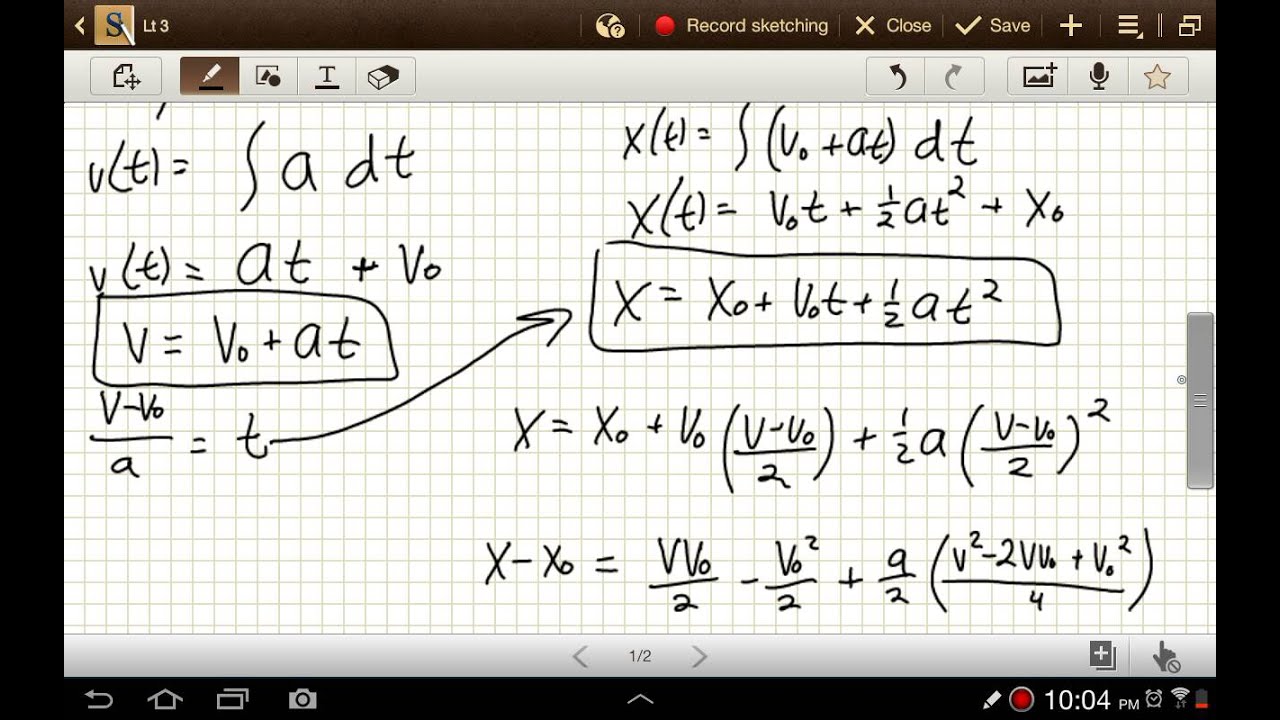 Lt 3 Record sketching Close Save
T
v(t) = ∫ a dt
v(t) = at + v₀
v = v₀ + at
(v-v₀)/a = t
x(t) = ∫ (v₀ + at) dt
x(t) = v₀t + ½at² + x₀
x = x₀ + v₀t + ½at²
x = x₀ + v₀((v-v₀)/2) + ½a((v-v₀)/2)²
x - x₀ = vv₀/2 - v₀²/2 + a/2((v² - 2vv₀ + v₀²)/4)
1/2
10:04 PM